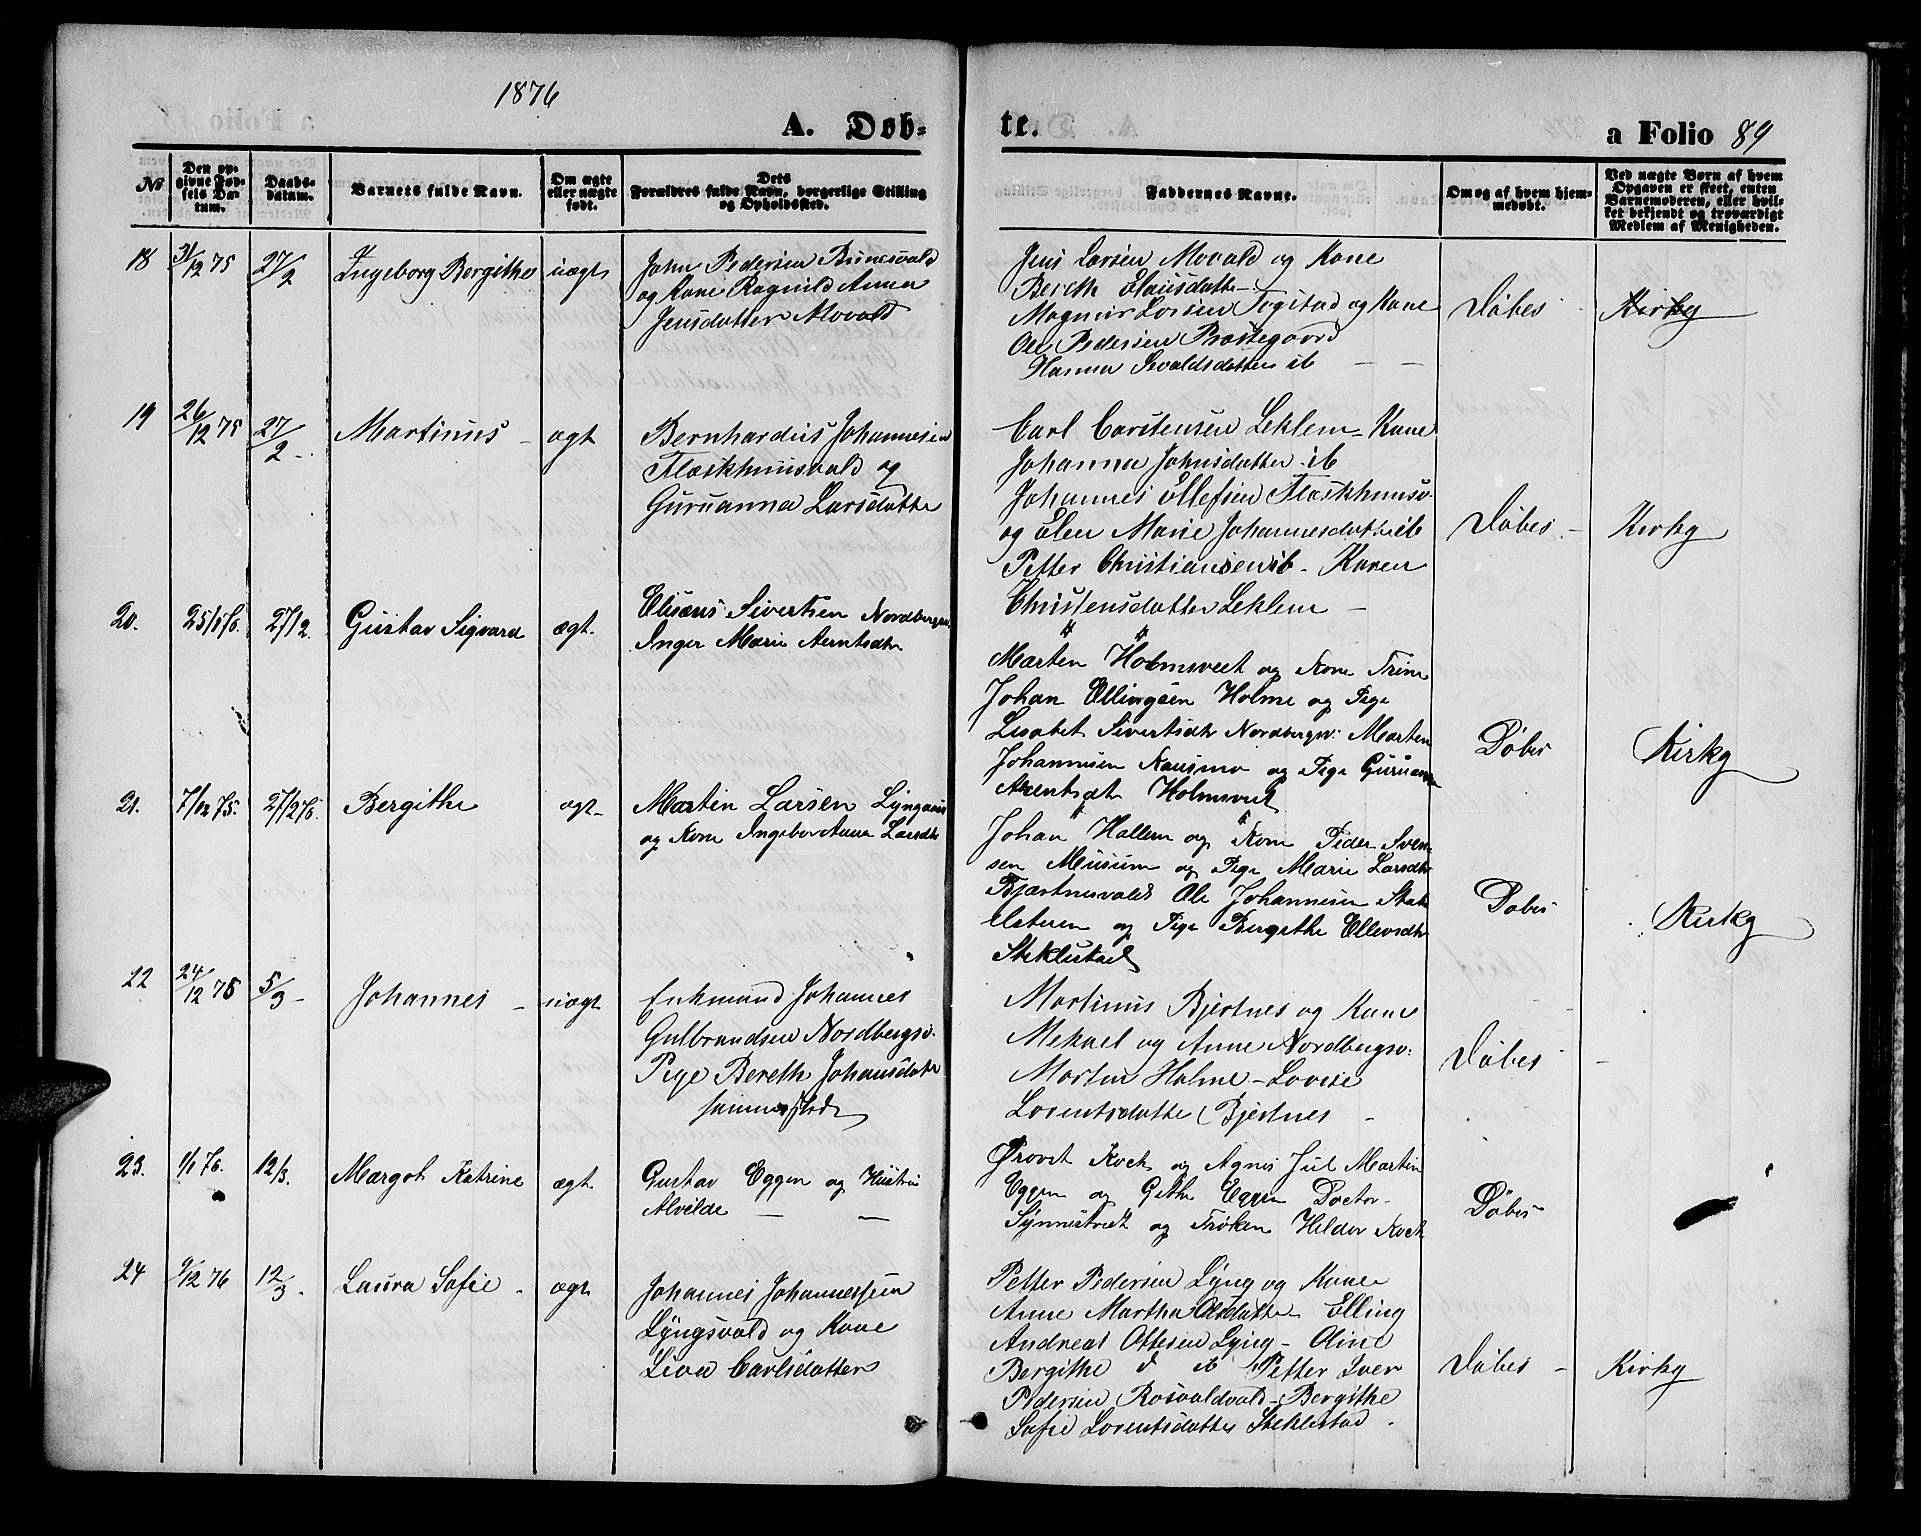 1876
A. Døb-
te.
a Folio 89
No
Den op-
givne Fød-
sels Da-
tum.
Daabs-
datum.
Barnets fulde Navn.
Om ægte
eller uægte
født.
Dets
Forældres fulde Navn, borgerlige Stilling
og Opholdssted.
Faddernes Navne.
Om og af hvem hjem-
medøbt.
Ved uægte Børn af hvem
Opgaven er skeet, enten
Barnemoderen, eller hvil-
ket bekjendt og troværdigt
Medlem af Menigheden.
18 31/12 75 27/2 Ingeborg Bergithe uægt
John Pedersen
og Kone Ragnild Anna
Jensdatter Movald
Jens Larsen Movald og Kone
Bereth Elausdatte
Magnus Larsen Togstad og Kone
Ole Pedersen Præstegaard
Hanna Sivaldsdatter ib
Døbes
Kirky
19 26/12 75 27/2 - Martinus - ægt
Bernhardus Johannesen
Flæskhuusvald og
Guruanna Larsdatte
Carl Carstensen Leklem - Kone
Johanna Johnsdatter ib
Johannes Ellefsen Flæskhuusv.
og Elen Marie Johannesdatte ib
Petter Christiansen ib - Karen
Christensdatter Leklem -
Døbes -
Kirky
20. 25/1 76. 27/2. Gustav Sigvard ægt.
Elisæus Sivertsen Nordbergv.
Inger Marie Aerntsdtr
Marten Holmsveet og Kone Trine
Johan Ellingsen Holme og Pige
Lisabet Sivertsdtr Nordbergv: Marten
Johannesen Nausmo og Pige Guruanna
Arentsdt Holmsveet
Døbes
Kirky
21. 7/12 75. 27/2 76. Bergithe ægt-
Martin Larsen Lyngaas
og Kone Ingebor Anna Larsdtr
Johan Hallem og Kone Peder Sven-
sen Musum og Pige Marie Larsdtr
Bjærtnesvald Ole Johannesen
og Pige Bergithe Ellevsdtr
Stiklestad
Døbes
Kirky
22 24/12 75 5/3 - Johannes - uægt
Enkmand Johannes
Gulbrandsen Nordbergv.
Pige Bereth Johansdatte
sammested
Martinus Bjertnes og Kone
Mekael og Anne Nordbergv:
Martin Holme - Lovise
Lorentsdatte Bjertnes -
Døbes -
23. 1/1 76. 12/3. Margot Katrine ægt.
Gustav Eggen og Hustru
Alvilde - -
Provst Koch og Agnes Jul Martin
Eggen og Githe Eggen Doctor
Synnestvedt og Frøken Hilder Koch
Døbes
24 9/12 76 12/3. Laura Sofie - ægt
Johannes Johannessen
Lyngsvald og Kone
Lina Carlsdatter
Petter Pedersen Lyng og Kone
Anne Martha Olsdatte Elling
Andreas Ottesen Lyng - Oline
Bergithe d ib Petter Iver
Pedersen Rosvaldvald - Bergithe
Sofie Lorentsdatter Stiklestad -
Døbes -
Kirky